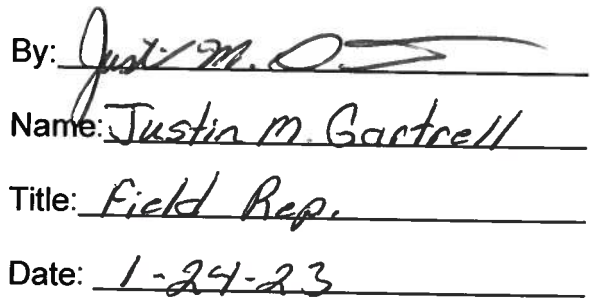 By: Justin M.
Name: Justin M. Gartrell
Title: Field Rep.
Date: 1-24-23